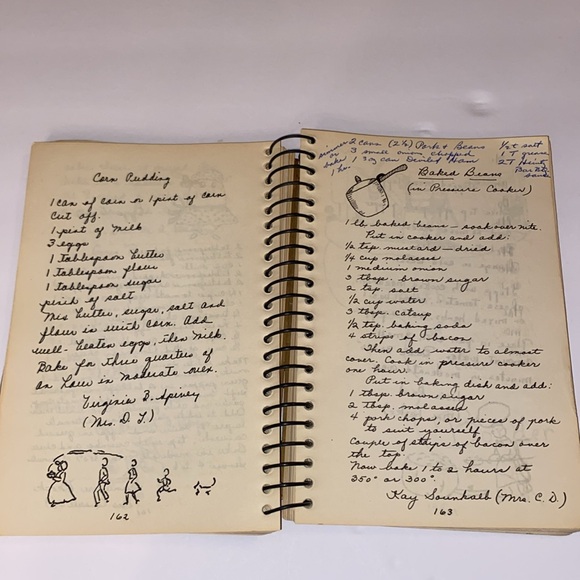 Corn Pudding
1 can of corn or 1 pint of corn
cut off.
1 pint of milk
3 eggs
1 tablespoon butter
1 tablespoon flour
1 tablespoon sugar
pinch of salt
Mix butter, sugar, salt and
flour in with corn. Add
well-beaten eggs, then milk.
Bake for three quarters of
an hour in moderate oven.
Virginia B. Spivey
(Mrs. D. T.)
162
simmer
or
bake
1 hr.
2 cans (2½) Pork & Beans
3 small onion chopped
1 3 oz can Deviled Ham
½ t salt
1 T
2 T Heinz
Bar BQ
sauce
Baked Beans
(in Pressure Cooker)
1 lb. baked beans – soak over nite.
Put in cooker and add:
½ tsp. mustard – dried
¼ cup molasses
1 medium onion
3 tbsp. brown sugar
2 tsp. salt
½ cup water
3 tbsp. catsup
½ tsp. baking soda
4 strips of bacon
Then add water to almost
cover. Cook in pressure cooker
one hour.
Put in baking dish and add:
1 tbsp. brown sugar
2 tbsp. molasses
4 pork chops, or pieces of pork
to suit yourself
Couple of strips of bacon over
the top.
Now bake 1 to 2 hours at
350° or 300°.
Kay (Mrs. C. D.)
163